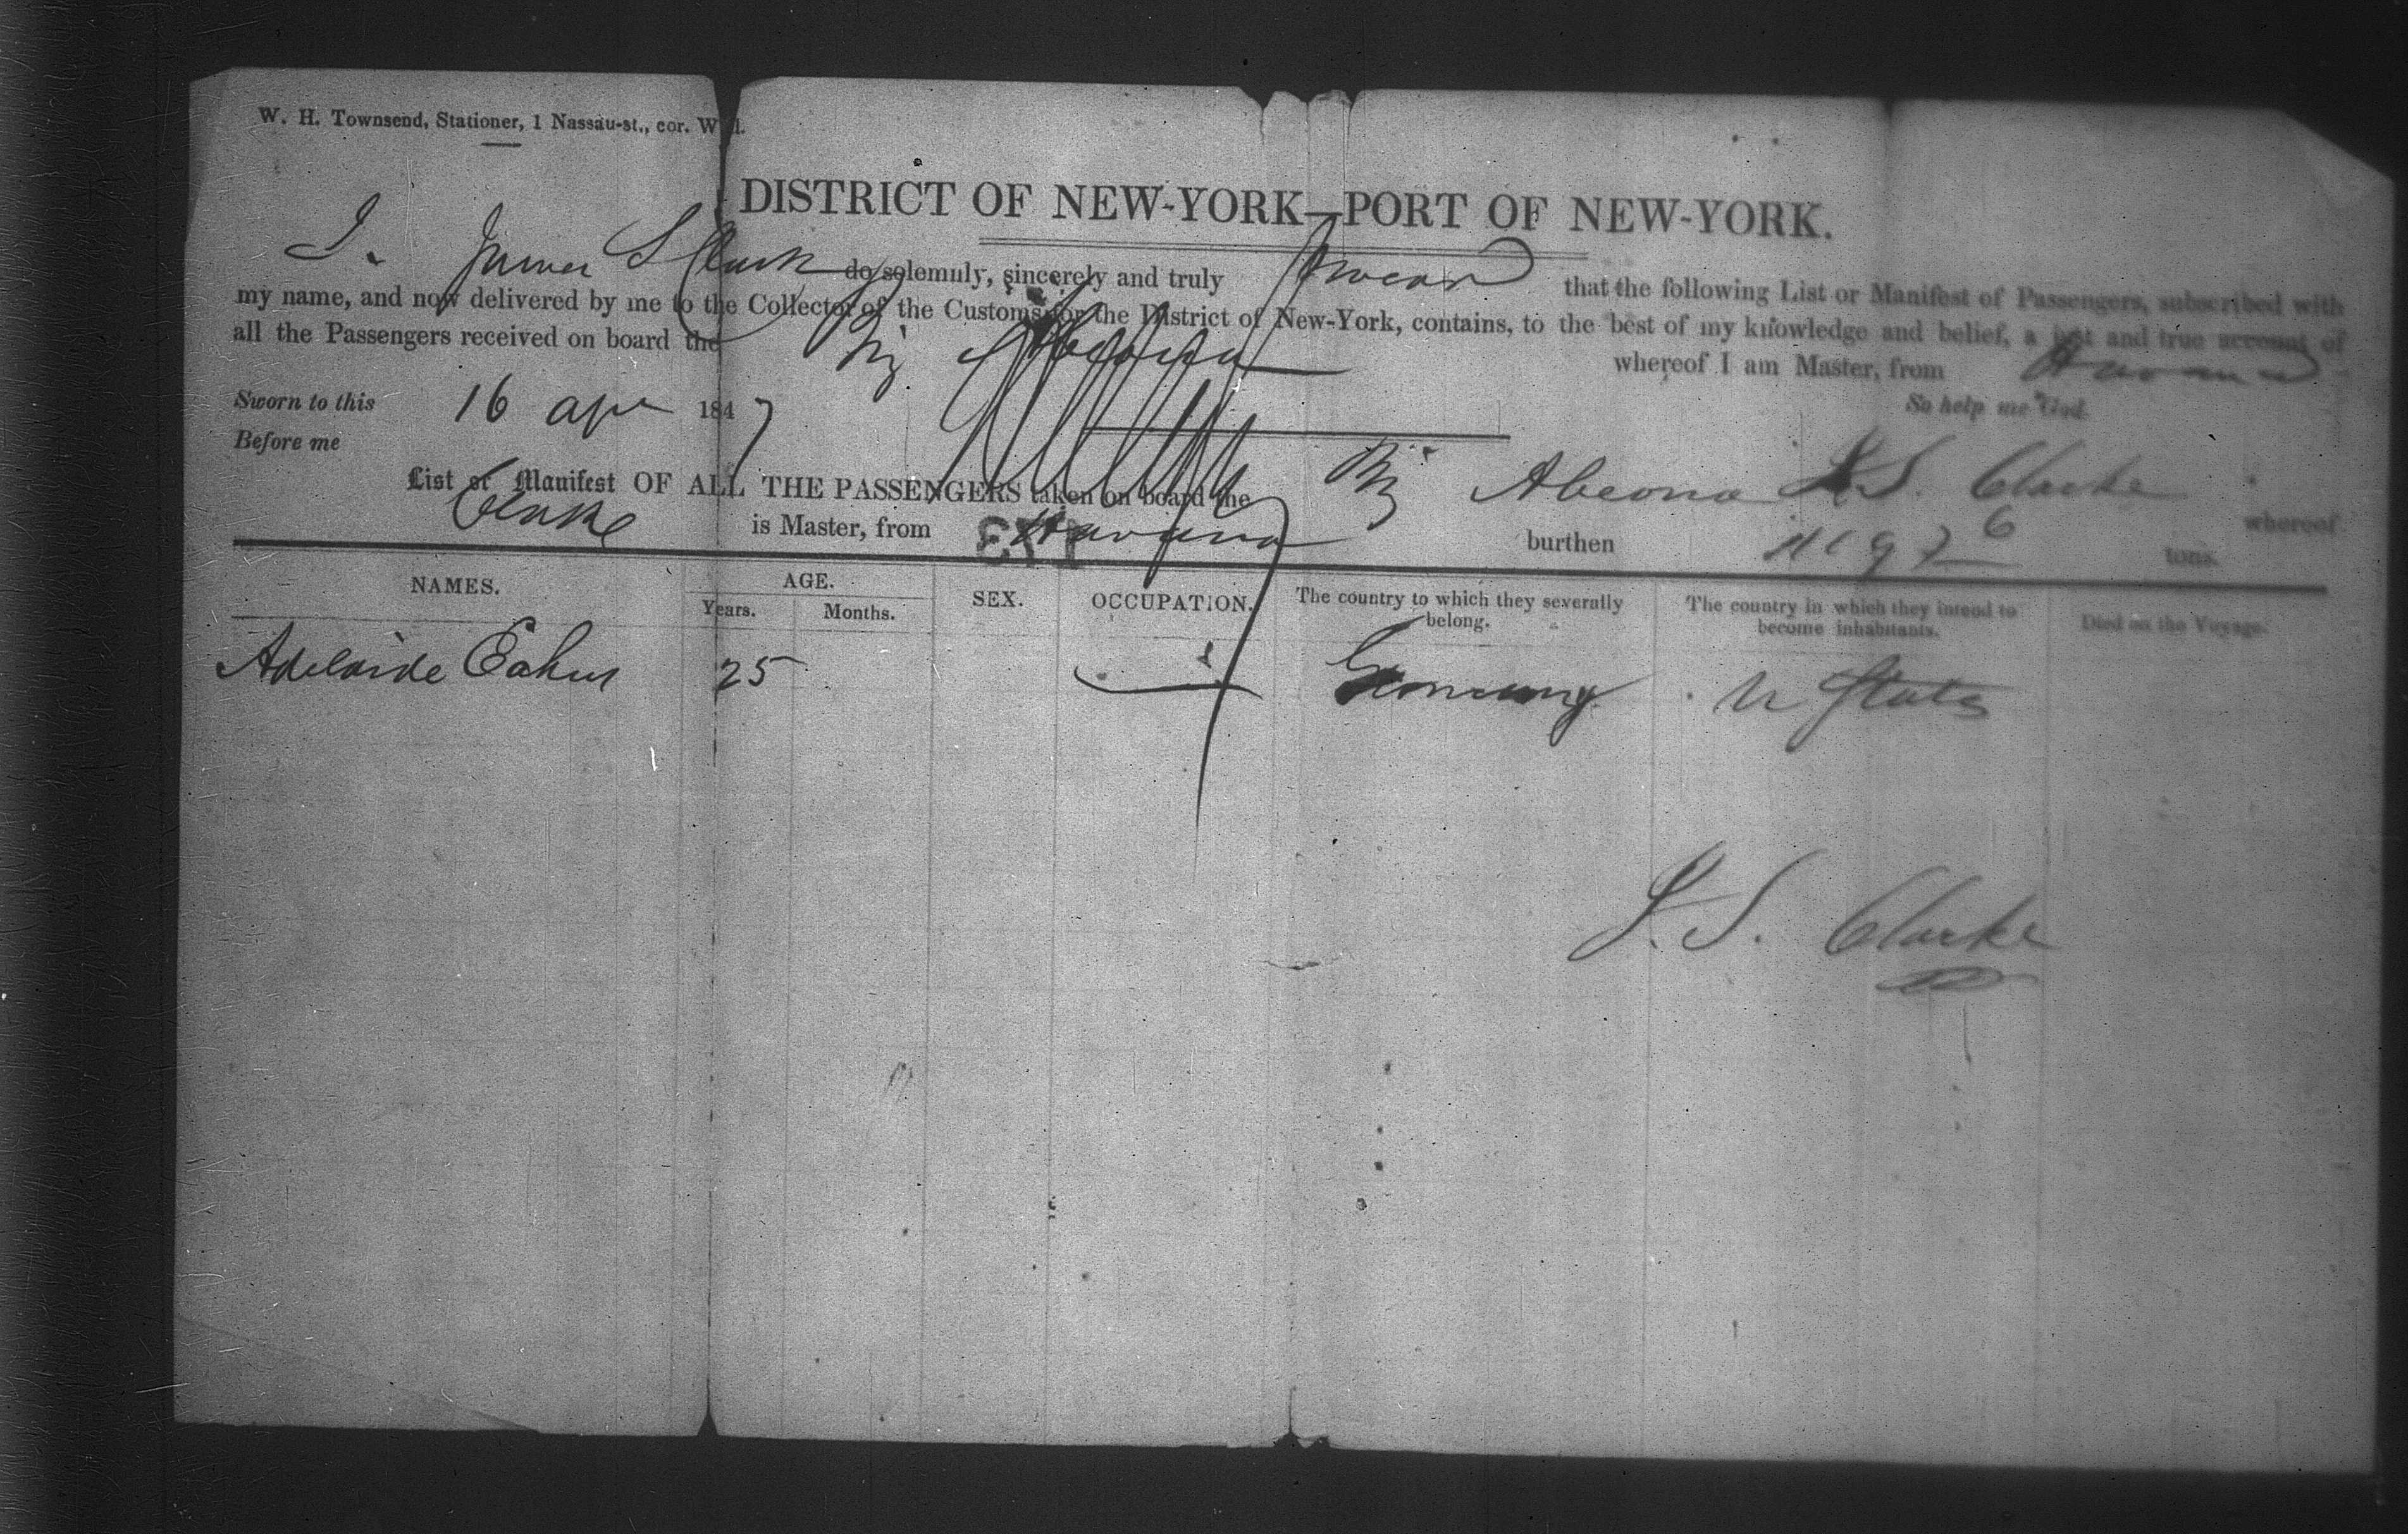 W. H. Townsend, Stationer, 1 Nassau-st., cor. Wall.
DISTRICT OF NEW-YORK—PORT OF NEW-YORK.
I. James S Clark do solemnly, sincerely and truly Swear that the following List or Manifest of Passengers, subscribed with
my name, and now delivered by me to the Collector of the Customs for the District of New-York, contains, to the best of my knowledge and belief, a just and true account of
all the Passengers received on board the Brig Abeona whereof I am Master, from Havana
So help me God.
Sworn to this 16 apr 1847
Before me
List or Manifest OF ALL THE PASSENGERS taken on board the Brig Abeona J.S. Clarke whereof
Clarke is Master, from Havana burthen tons.
NAMES. AGE. SEX. OCCUPATION. The country to which they severally belong. The country in which they intend to become inhabitants. Died on the Voyage.
Years. Months.
Adelaide 25 Germany U States
J. S. Clarke